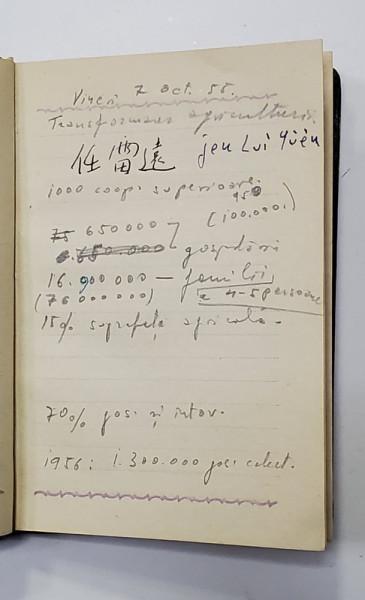 Vineri 7 oct. 55.
Transformarea agriculturii.
任雷遠 Jen Lui Yüen
1000 coop. superioare.
75 650000 (100.000.)
650.000 gospodării
16.900000 — familii,
(76 000000) a 4-5 persoane
15% suprafața agricolă.
70% gosp. și întov.
1956: 1.300.000 gosp. colect.